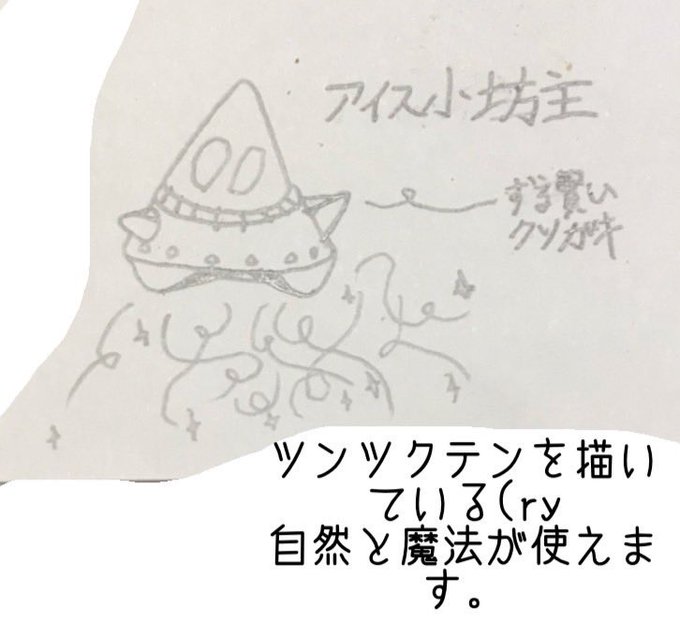 アイス小坊主
ずる賢い
クソガキ
ツンツクテンを描い
ている(ry
自然と魔法が使えま
す。